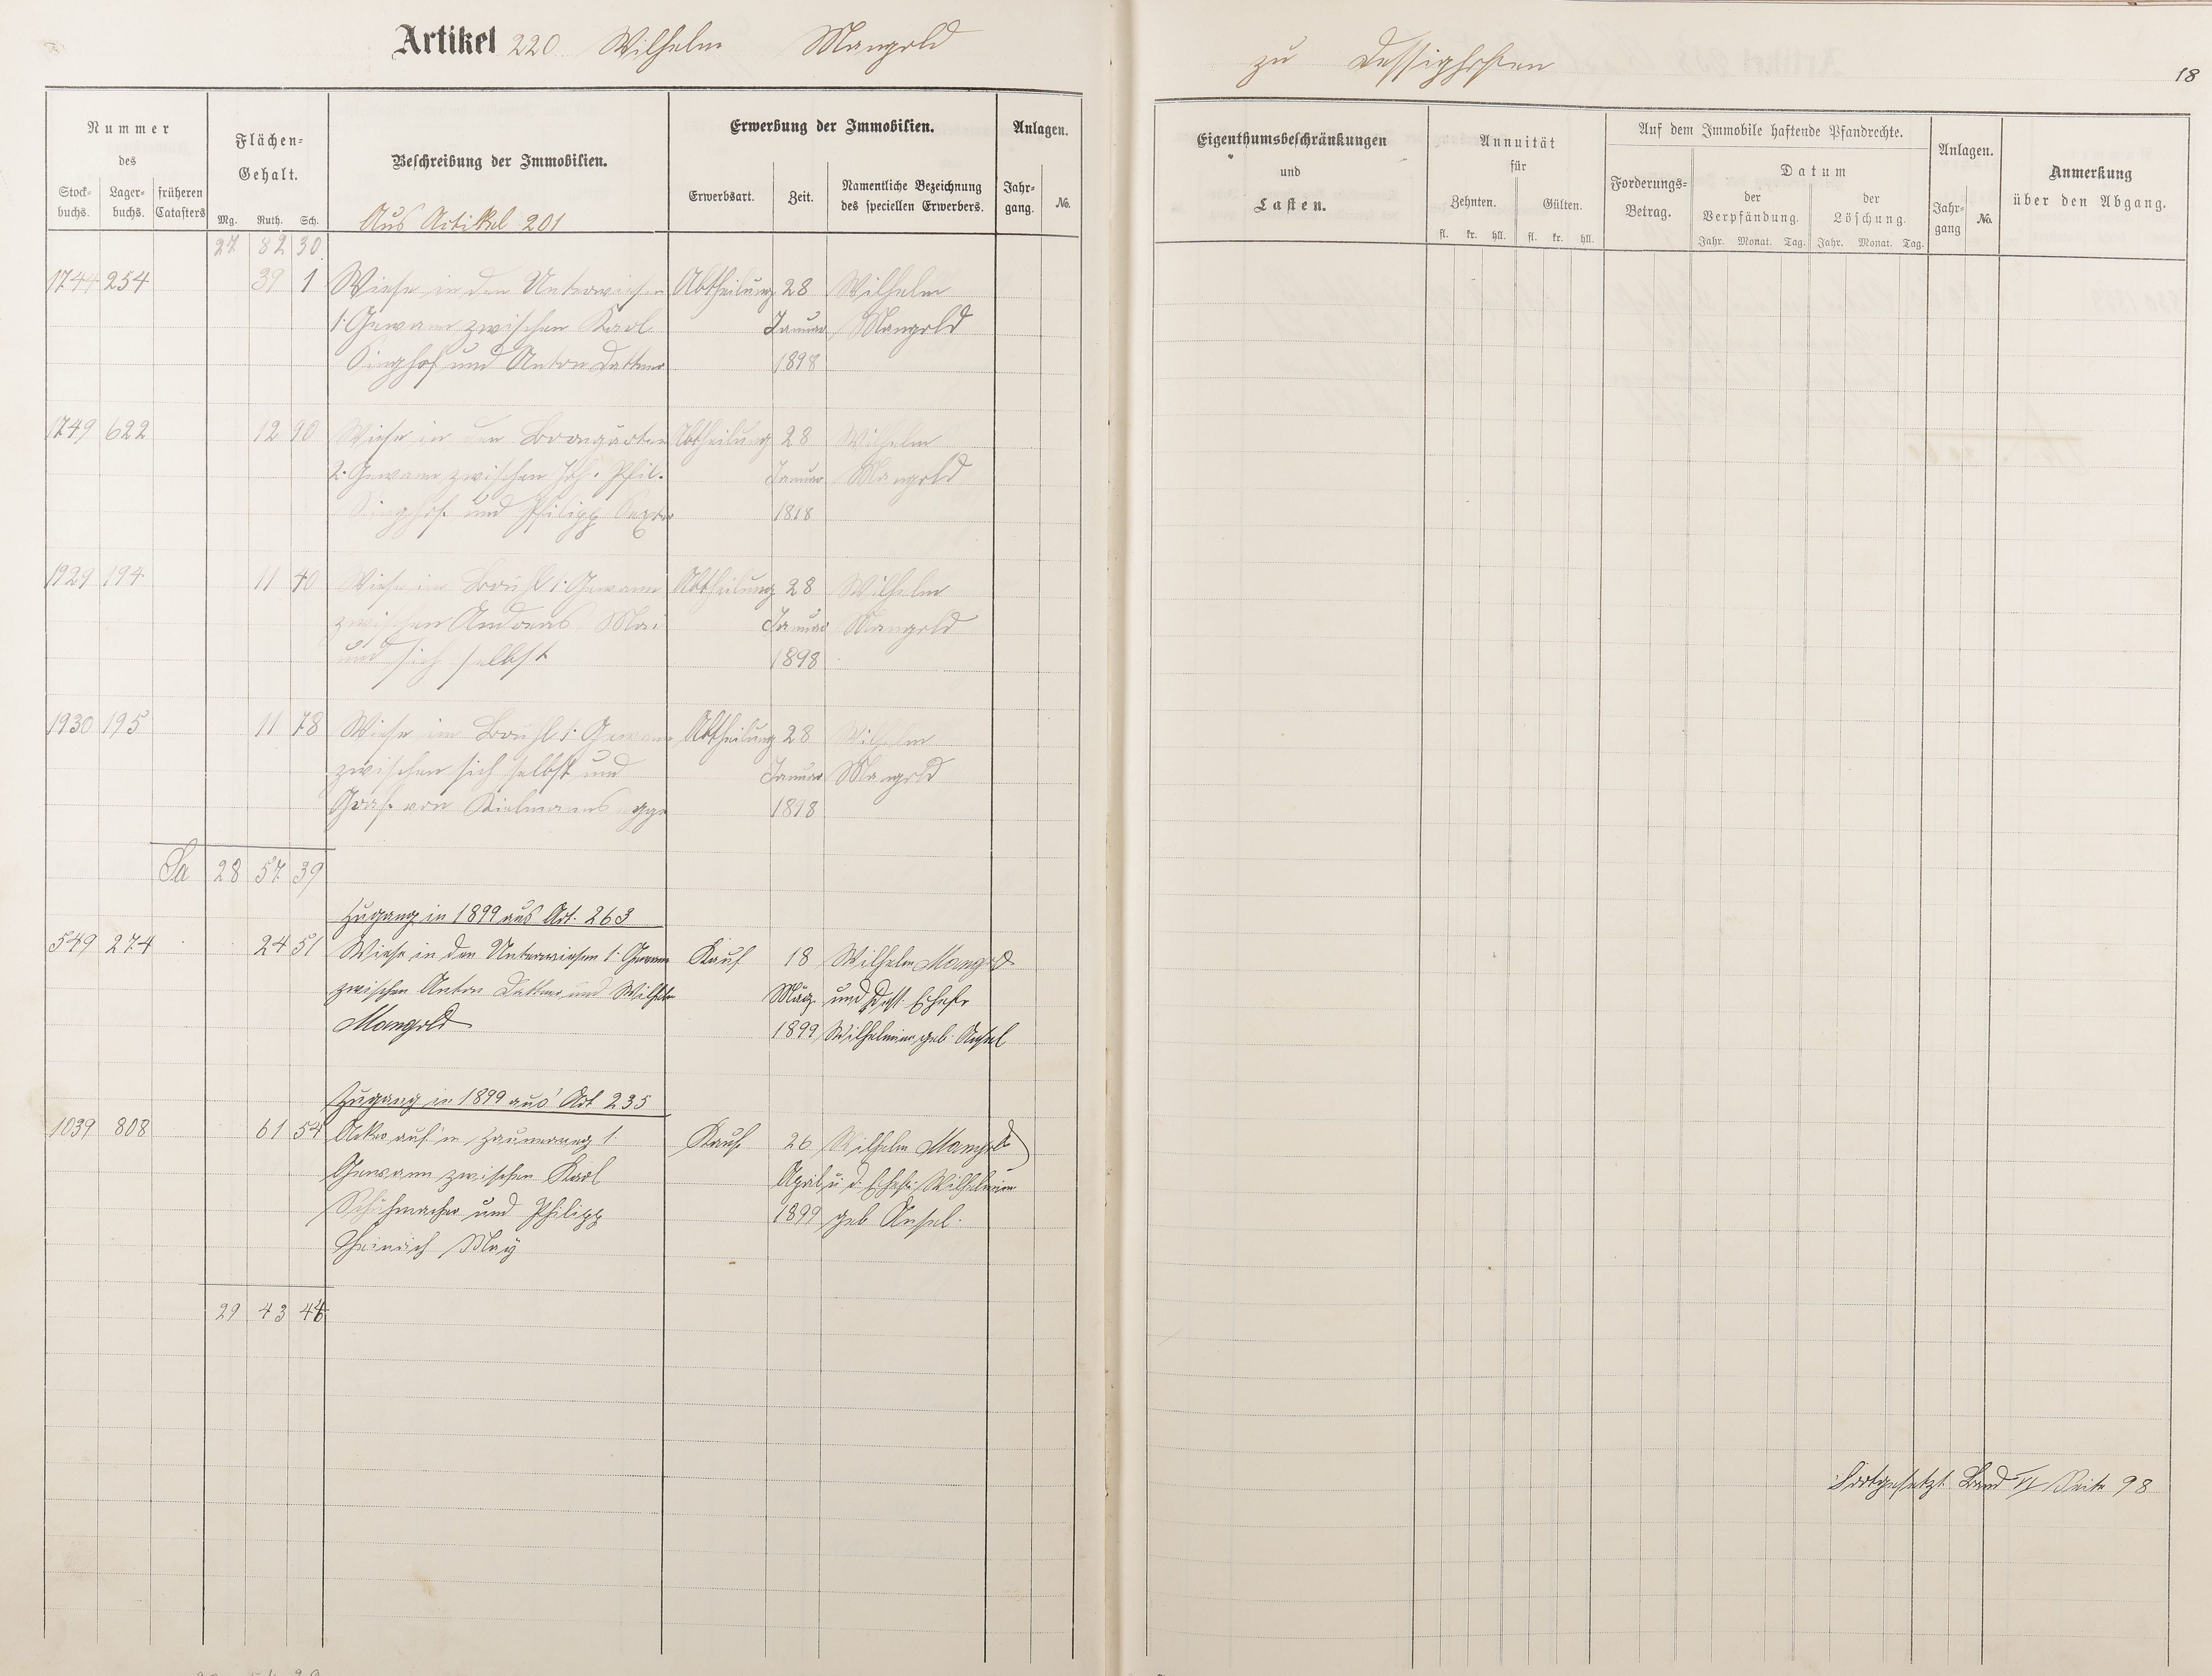 Artikel 220 Wilhelm Mangold
zu Dessighofen
18
Nummer
des
Stock-
buchs.
Lager-
buchs.
früheren
Catasters
Flächen-
Gehalt.
Mg. Ruth. Sch.
Beschreibung der Immobilien.
Erwerbung der Immobilien.
Erwerbsart.
Zeit.
Namentliche Bezeichnung
des speciellen Erwerbers.
Anlagen.
Jahr-
gang.
No.
Eigenthumsbeschränkungen
und
Lasten.
Annuität
für
Zehnten. Gülten.
fl. kr. hll. fl. kr. hll.
Auf dem Immobile haftende Pfandrechte.
Forderungs-
Betrag.
Datum
der
Verpfändung.
der
Löschung.
Jahr. Monat. Tag. Jahr. Monat. Tag.
Anlagen.
Jahr-
gang
No.
Anmerkung
über den Abgang.
Aus Artikel 201
27 82 30
1744 254 39 1 Wiese in den Unterwiesen Abtheilung 28 Wilhelm
1. Gewann zwischen Karl Januar Mangold
Singhof und Anton Dettmer 1898
1749 622 12 90 Wiese in den Bomgärten Abtheilung 28 Wilhelm
2. Gewann zwischen Joh. Phil. Januar Mangold
Singhof und Philipp 1818
1929 194 11 40 Wiese im Brühl 1. Gewann Abtheilung 28 Wilhelm
zwischen Andreas Mai Januar Mangold
und sich selbst 1898
1930 195 11 78 Wiese im Brühl 1. Gewann Abtheilung 28 Wilhelm
zwischen sich selbst und Januar Mangold
Graf von Kielmannsegge 1898
Sa 28 57 39
Zugang in 1899 aus Art. 263
549 274 24 51 Wiese in den Unterwiesen 1. Gewann Kauf 18 Wilhelm Mangold
zwischen Anton Dettmer und Wilhelm März und Ehefr
Mangold 1899 Wilhelmine geb. Ansel
Zugang in 1899 aus Art 235
1039 808 61 54 Acker auf'm 1. Kauf 26 Wilhelm Mangold
Gewann zwischen Karl April u. d. Ehefr. Wilhelmine
Schuhmacher und Philipp 1899 geb Ansel.
Heinrich May
29 43 44
Fortgesetzt Band VI Seite 98